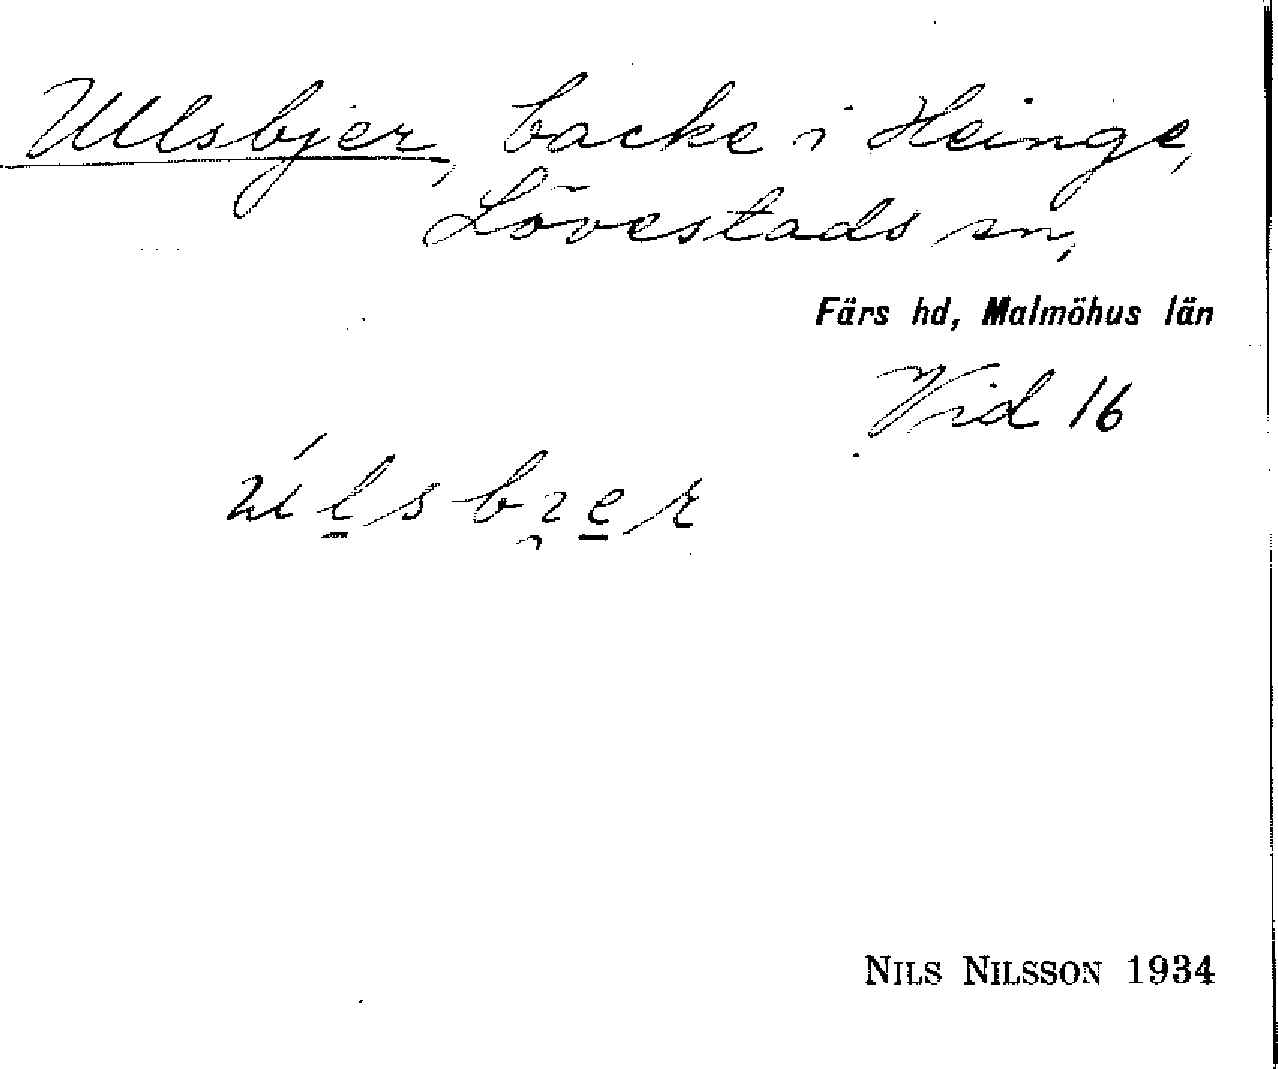 Ullsbjer, backe i Heinge,
Lövestads sn,
Färs hd, Malmöhus län
Vid 16
NILS NILSSON 1934